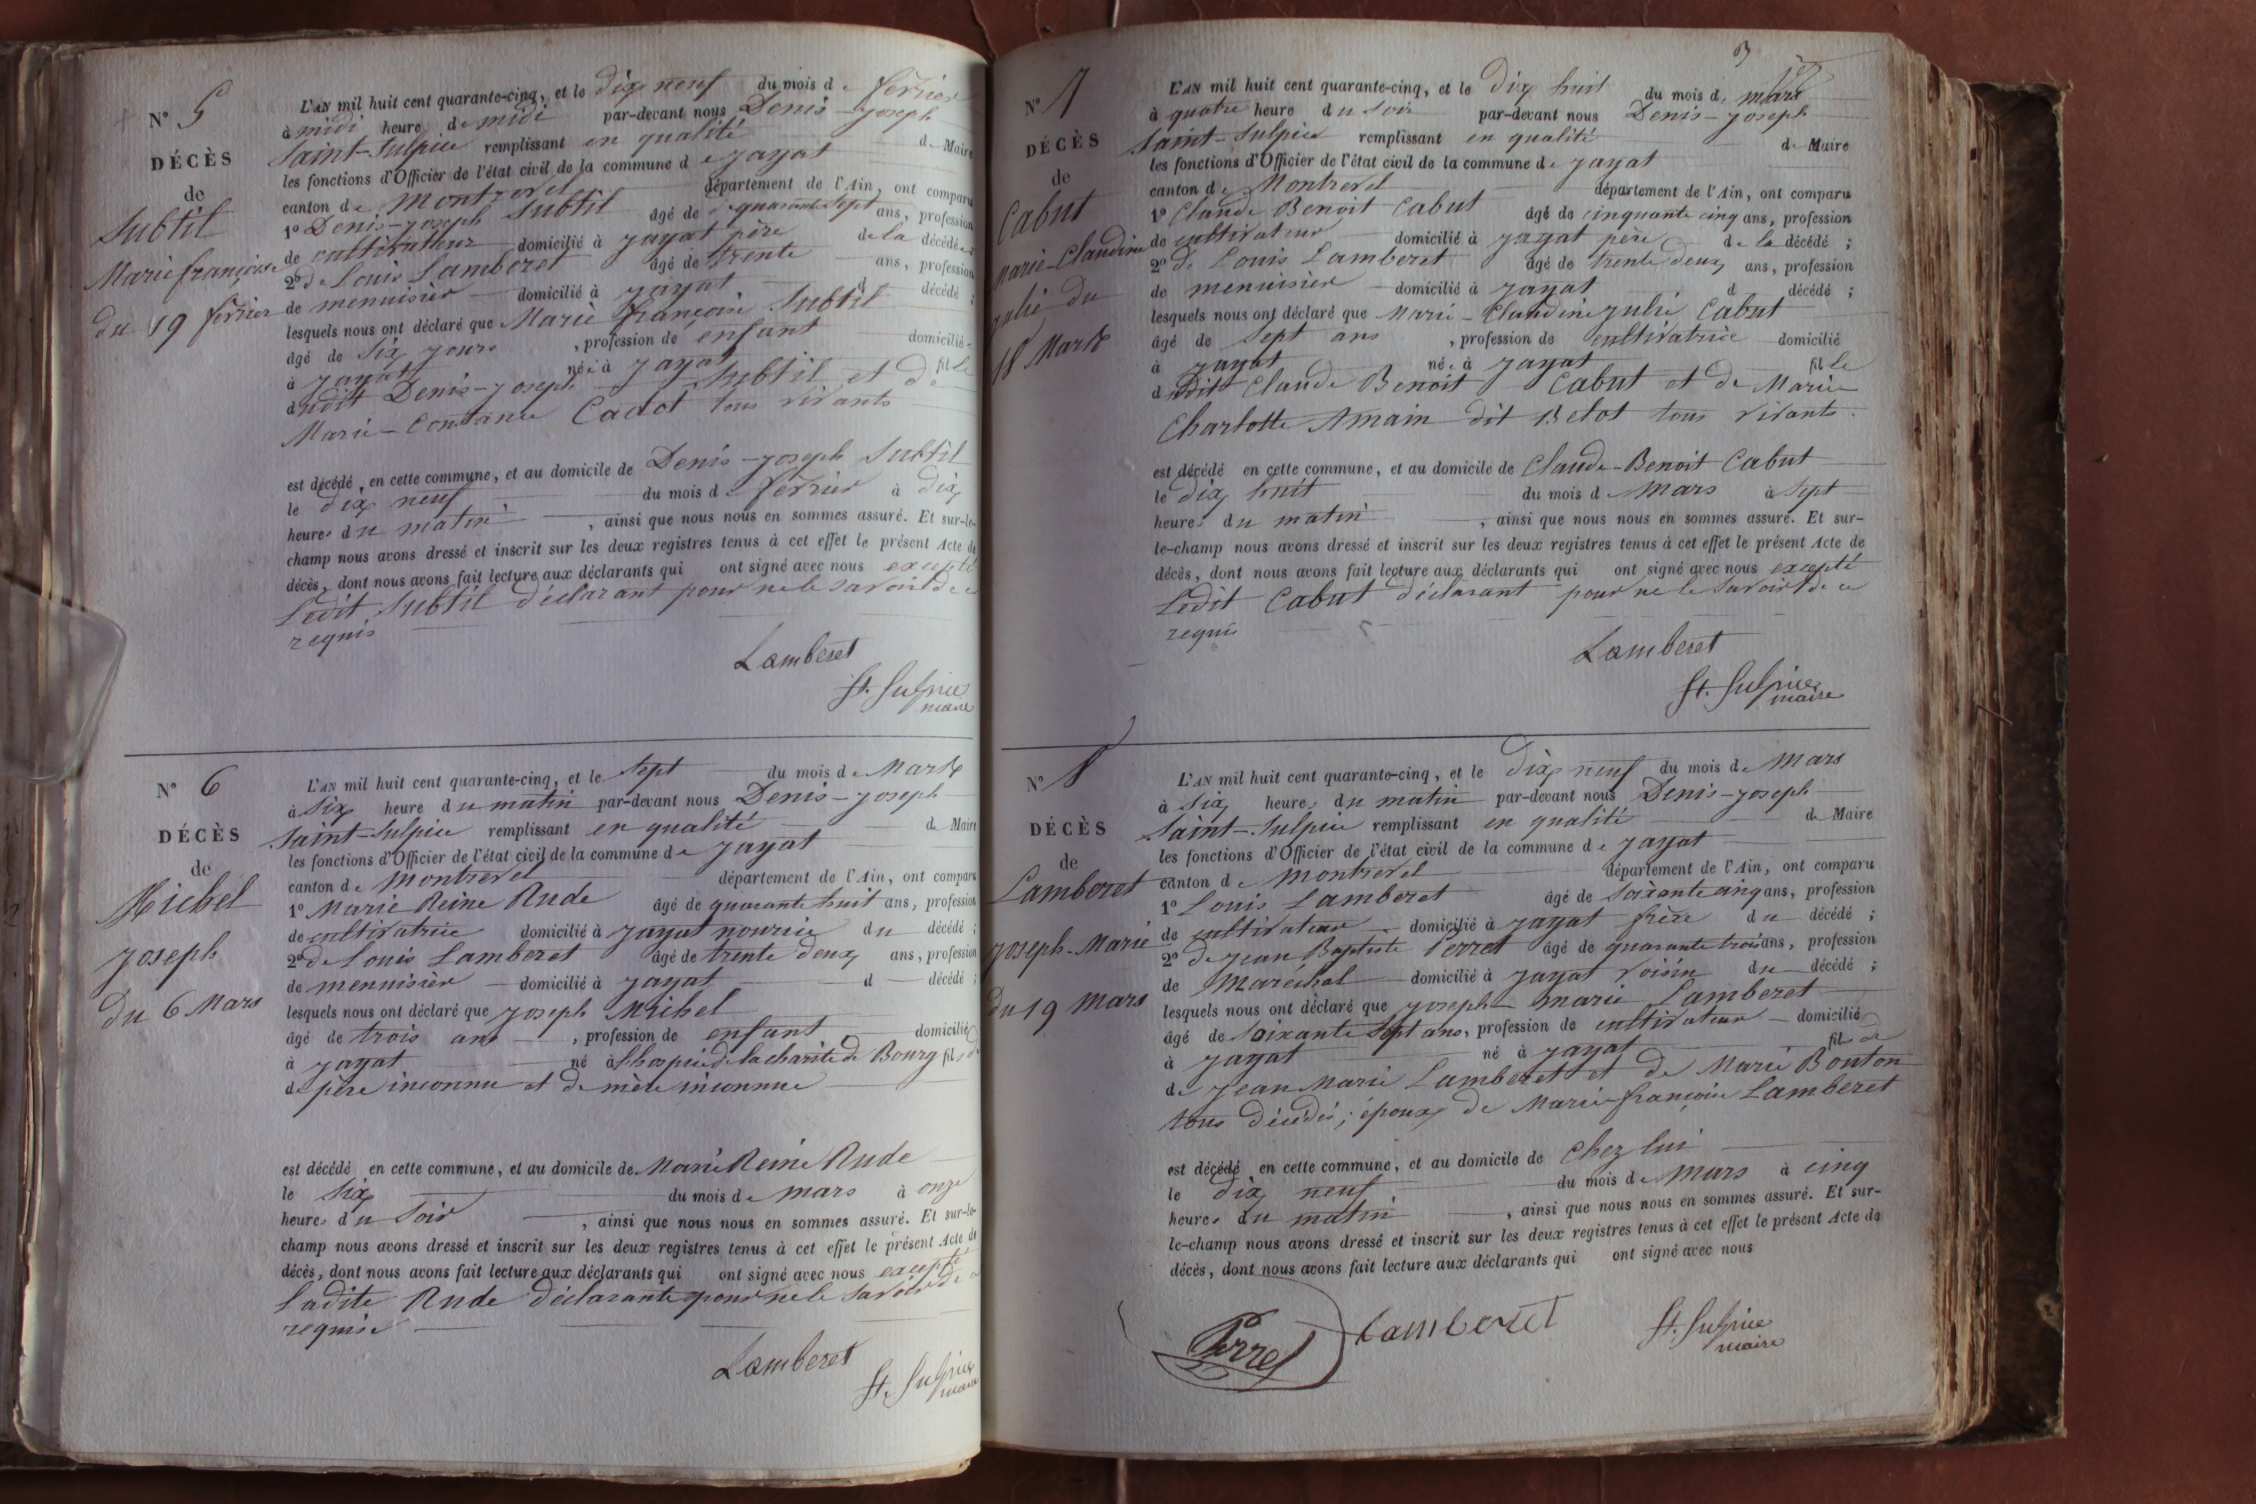 N° 5
DÉCÈS
de
Subtil
Marie françoise
du 19 février
L'AN mil huit cent quarante-cinq, et le dix neuf du mois de février
à midi heure de midi par-devant nous Denis-joseph
Saint-Sulpice remplissant en qualité de Maire
les fonctions d'Officier de l'état civil de la commune de jayat
canton de Montrevel département de l'Ain, ont comparu
1° Denis-joseph Subtil âgé de quarante sept ans, profession
de cultivateur domicilié à jayat père de la décédée
2° de Louis Lamberet âgé de trente ans, profession
de menuisier domicilié à jayat d décédé ;
lesquels nous ont déclaré que Marie françoise Subtil
âgé de six jours , profession de enfant domicilié
à jayat née à jayat fille
dudit Denis-joseph Subtil et de
Marie-Constance Cadot tous vivants
est décédé en cette commune, et au domicile de Denis-joseph Subtil
le dix neuf du mois de février à dix
heures du matin , ainsi que nous nous en sommes assuré. Et sur-le-
champ nous avons dressé et inscrit sur les deux registres tenus à cet effet le présent Acte de
décès, dont nous avons fait lecture aux déclarants qui ont signé avec nous excepté
Ledit Subtil déclarant pour ne le savoir de ce
requis
Lamberet
St. Sulpice
maire
N° 6
DÉCÈS
de
Michel
joseph
du 6 Mars
L'AN mil huit cent quarante-cinq, et le sept du mois de Mars
à six heure du matin par-devant nous Denis-joseph
Saint-Sulpice remplissant en qualité de Maire
les fonctions d'Officier de l'état civil de la commune de jayat
canton de Montrevel département de l'Ain, ont comparu
1° Marie Reine Rude âgé de quarante huit ans, profession
de cultivatrice domicilié à jayat nourice du décédé ;
2° de Louis Lamberet âgé de trente deux ans, profession
de menuisier domicilié à jayat d décédé ;
lesquels nous ont déclaré que joseph Michel
âgé de trois ans , profession de enfant domicilié
à jayat né à l'hospice de la charité de Bourg fils
de père inconnu et de mère inconnue
est décédé en cette commune, et au domicile de Marie Reine Rude
le six du mois de mars à onze
heures du soir , ainsi que nous nous en sommes assuré. Et sur-le-
champ nous avons dressé et inscrit sur les deux registres tenus à cet effet le présent Acte de
décès, dont nous avons fait lecture aux déclarants qui ont signé avec nous excepté
Ladite Rude déclarante pour ne le savoir de ce
requise
Lamberet
St. Sulpice
maire
3
N° 7
DÉCÈS
de
Cabut
Marie-Claudine
julie du
18 Mars
L'AN mil huit cent quarante-cinq, et le dix huit du mois de mars
à quatre heure du soir par-devant nous Denis-joseph
Saint-Sulpice remplissant en qualité de Maire
les fonctions d'Officier de l'état civil de la commune de jayat
canton de Montrevel département de l'Ain, ont comparu
1° Claude Benoit Cabut âgé de cinquante cinq ans, profession
de cultivateur domicilié à jayat père de la décédé ;
2° de Louis Lamberet âgé de trente deux ans, profession
de menuisier domicilié à jayat d décédé ;
lesquels nous ont déclaré que Marie-Claudine julie Cabut
âgé de sept ans , profession de cultivatrice domicilié
à jayat née à jayat fille
dudit Claude Benoit Cabut et de Marie
Charlotte Amain dit Belot tous vivants.
est décédé en cette commune, et au domicile de Claude-Benoit Cabut
le dix huit du mois de Mars à sept
heures du matin , ainsi que nous nous en sommes assuré. Et sur-
le-champ nous avons dressé et inscrit sur les deux registres tenus à cet effet le présent Acte de
décès, dont nous avons fait lecture aux déclarants qui ont signé avec nous excepté
Ledit Cabut déclarant pour ne le savoir de ce
requis
Lamberet
St. Sulpice
maire
N° 8
DÉCÈS
de
Lamberet
joseph-Marie
du 19 mars
L'AN mil huit cent quarante-cinq, et le dix neuf du mois de Mars
à six heures du matin par-devant nous Denis-joseph
Saint-Sulpice remplissant en qualité de Maire
les fonctions d'Officier de l'état civil de la commune de jayat
canton de Montrevel département de l'Ain, ont comparu
1° Louis Lamberet âgé de soixante cinq ans, profession
de cultivateur domicilié à jayat frère du décédé ;
2° de jean Baptiste Perret âgé de quarante trois ans, profession
de Maréchal domicilié à jayat voisin du décédé ;
lesquels nous ont déclaré que joseph-marie Lamberet
âgé de soixante sept ans, profession de cultivateur domicilié
à jayat né à jayat fils
de jean Marie Lamberet et de Marie Bouton
tous décédés ; époux de Marie-françoise Lamberet
est décédé en cette commune, et au domicile de Chez lui
le dix neuf du mois de Mars à cinq
heures du matin , ainsi que nous nous en sommes assuré. Et sur-
le-champ nous avons dressé et inscrit sur les deux registres tenus à cet effet le présent Acte de
décès, dont nous avons fait lecture aux déclarants qui ont signé avec nous
Perret Lamberet St. Sulpice
maire